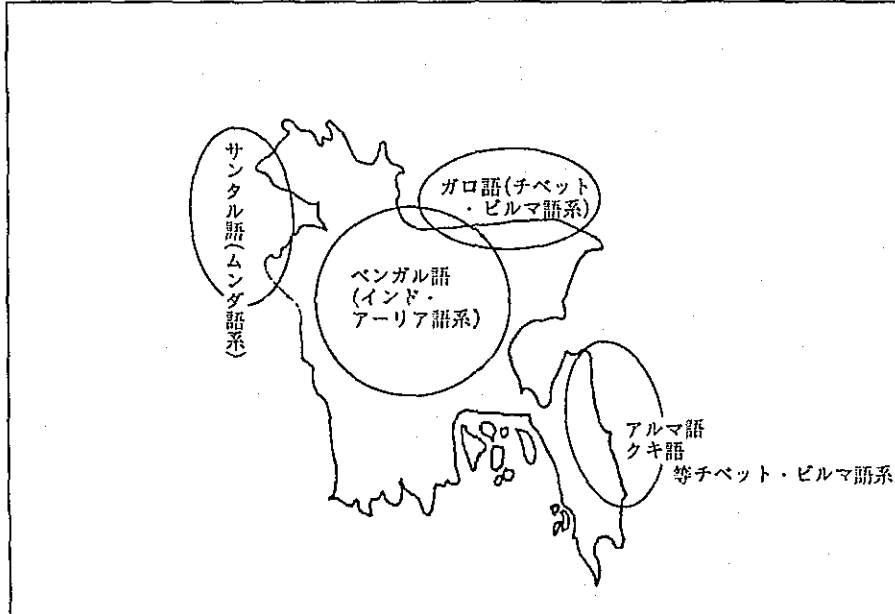 サンタル語(ムンダ語系)
ガロ語(チベット
・ビルマ語系)
ベンガル語
(インド・
アーリア語系)
アルマ語
クキ語
等チベット・ビルマ語系